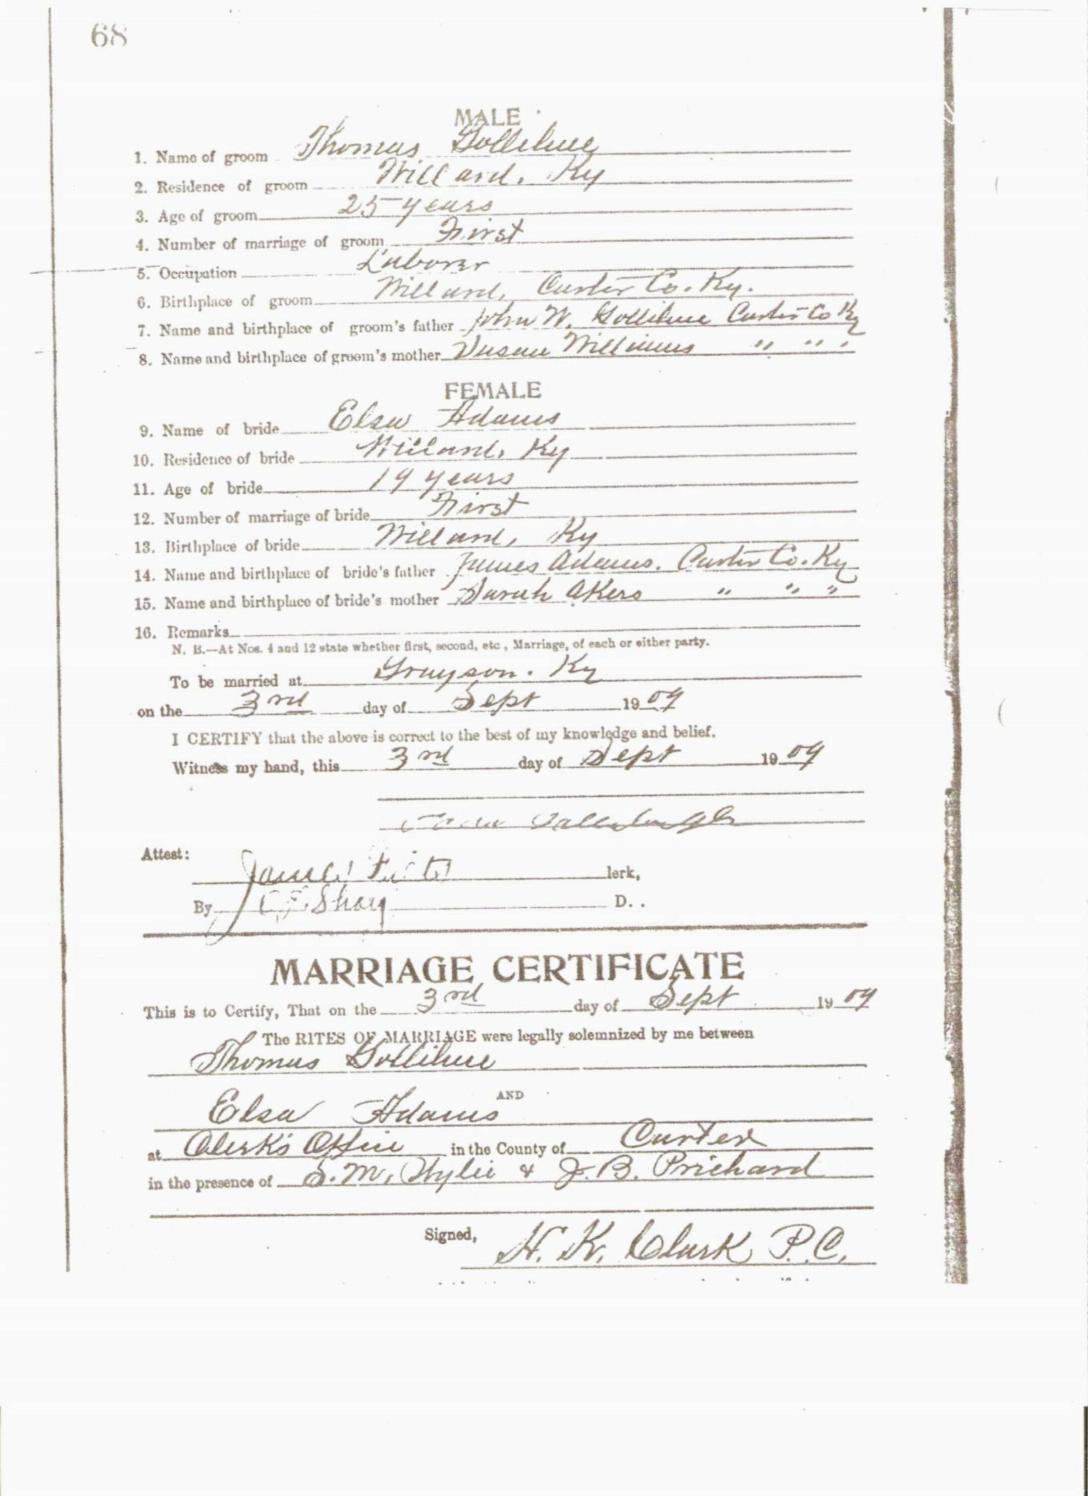 68
MALE
1. Name of groom Thomas Gollihue
2. Residence of groom Willard, Ky
3. Age of groom 25 years
4. Number of marriage of groom First
5. Occupation Laborer
6. Birthplace of groom Willard, Carter Co. Ky.
7. Name and birthplace of groom's father John W. Gollihue Carter Co Ky
8. Name and birthplace of groom's mother Susan Williams " " "
FEMALE
9. Name of bride Elsa Adams
10. Residence of bride Willard, Ky
11. Age of bride 19 years
12. Number of marriage of bride First
13. Birthplace of bride Willard, Ky
14. Name and birthplace of bride's father James Adams. Carter Co. Ky
15. Name and birthplace of bride's mother Sarah Akers " " "
16. Remarks
N. B.—At Nos. 4 and 12 state whether first, second, etc., Marriage, of each or either party.
To be married at Grayson. Ky
on the 3rd day of Sept 1909
I CERTIFY that the above is correct to the best of my knowledge and belief.
Witness my hand, this 3rd day of Sept 1909
Attest:
lerk,
By D. .
MARRIAGE CERTIFICATE
This is to Certify, That on the 3rd day of Sept 1909
The RITES OF MARRIAGE were legally solemnized by me between
Thomas Gollihue
AND
Elsa Adams
at Clerk's Office in the County of Carter
in the presence of S. M. Wylie & J. B. Prichard
Signed,
H. K. Clark P.C.